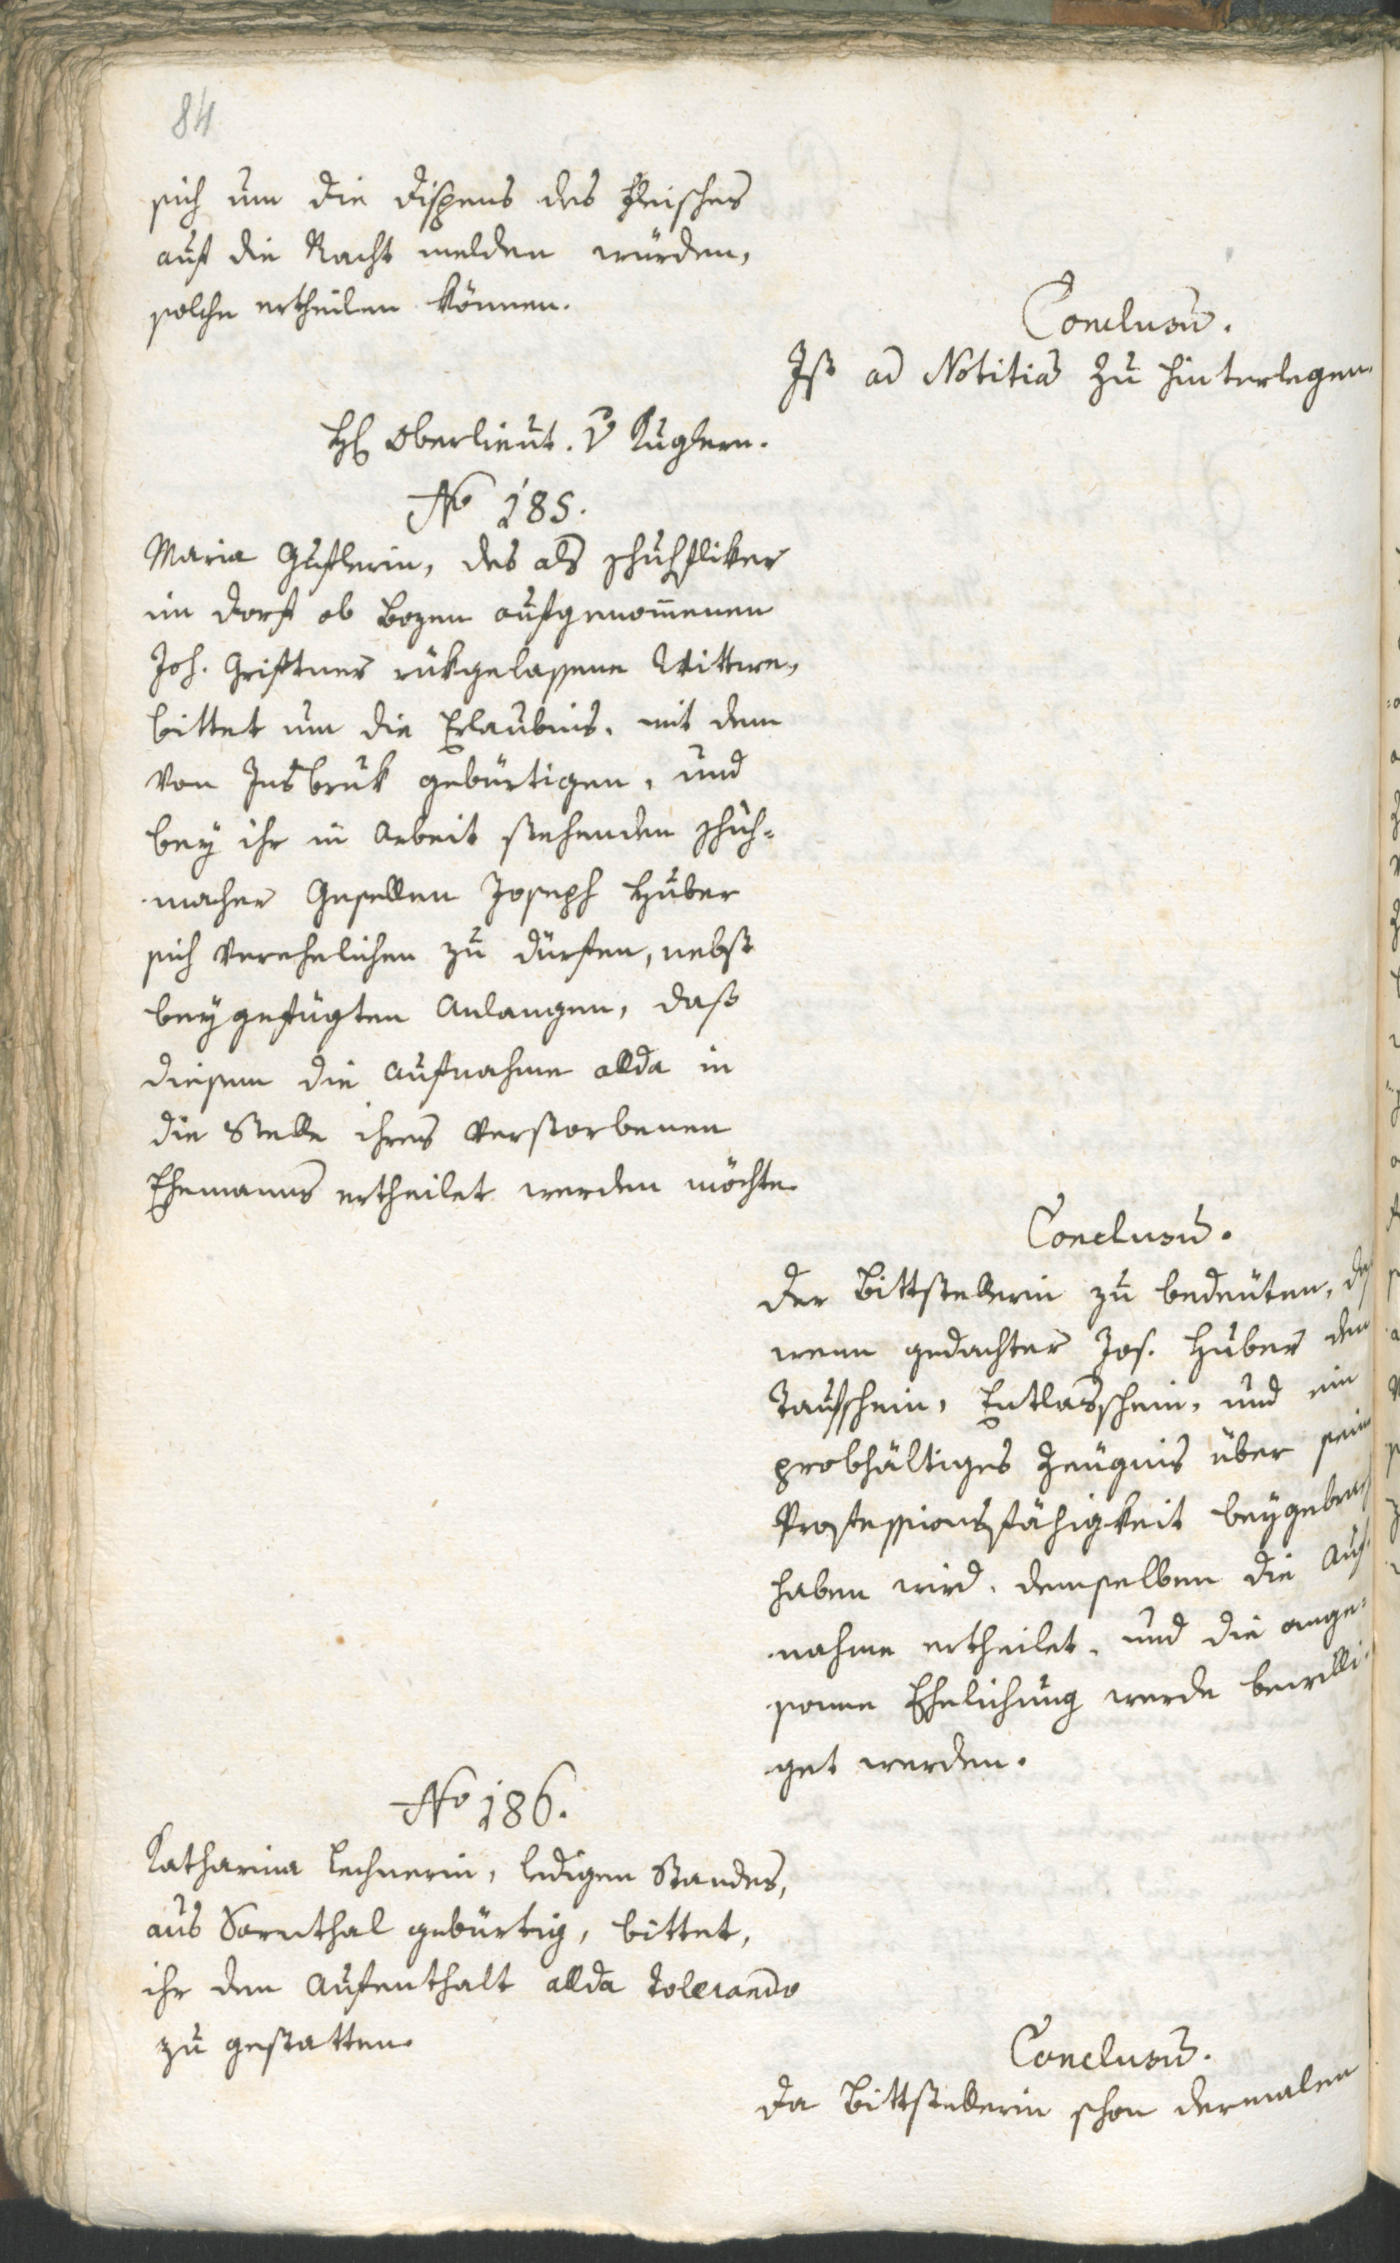 84
sich um die Dispens des Fleisches
auf die Nacht melden würden,
solche ertheilen können.
Conclusu͞.
Ist ad Notitia͞ zu hinterlegen.
H. Oberlieut. v Kuglern.
No 185.
Maria Gustlerin, des als Schuhfliker
im Dorf ob Bozen aufgenom̅enen
Joh. Gristners rükgelassene Wittwe,
bittet um die Erlaubnis, mit dem
von Insbruk gebürtigen, und
bey ihr in Arbeit stehenden Schuh-
macher Gesellen Joseph Huber
sich verehelichen zu dürfen, nebst
beygefügten Anlangen, daß
diesem die Aufnahme allda in
die Stelle ihres verstorbenen
Ehemanns ertheilet werden möchte.
Conclusu͞.
Der Bittstellerin zu bedeuten, daß
wenn gedachter Jos. Huber den
Taufschein, Entlasschein, und ein
probhältiges Zeugnis über seine
Professionsfähigkeit beygebracht
haben wird, demselben die Auf-
nahme ertheilet, und die ange-
sonne Ehelichung werde bewilli-
get werden.
No 186.
Katharina Lechnerin, ledigen Standes,
aus Sarnthal gebürtig, bittet,
ihr den Aufenthalt allda tolerando
zu gestatten.
Conclusu͞.
Da Bittstellerin schon dermalen